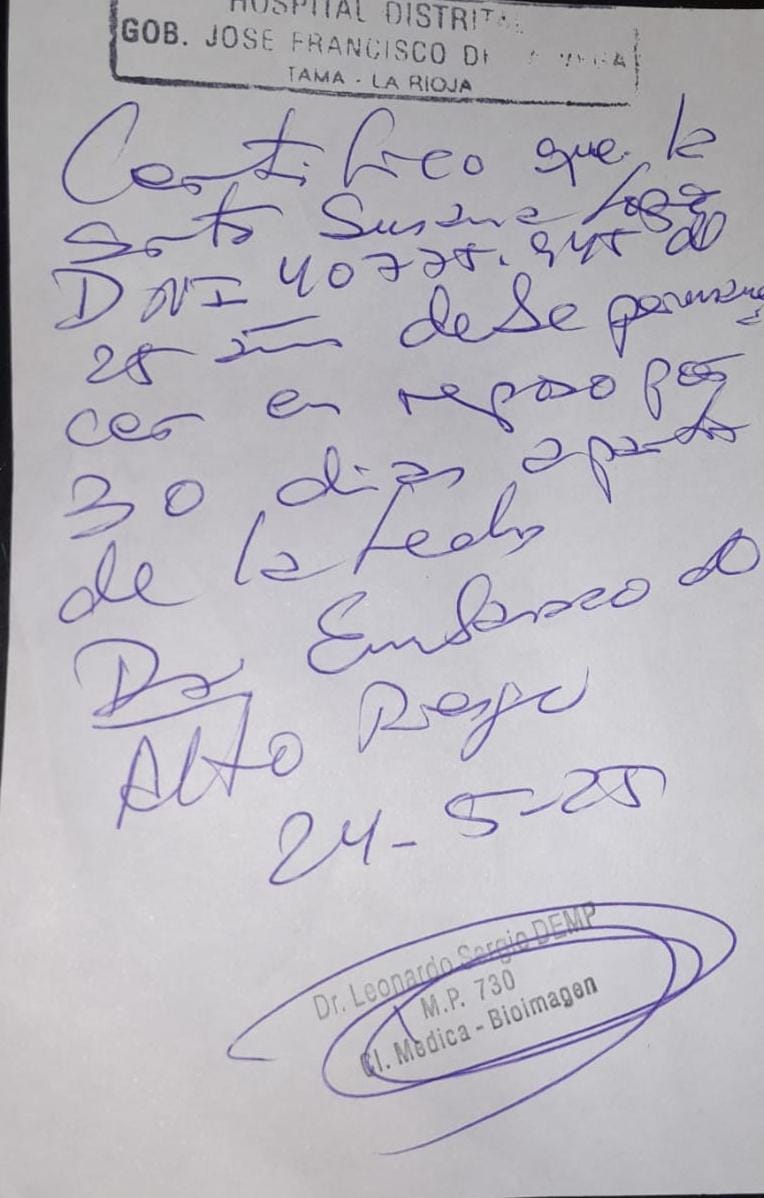 HOSPITAL DISTRITAL
GOB. JOSE FRANCISCO DE
TAMA - LA RIOJA
Certifico que la
Srta Susana
DNI 40775.945 de
25 años debe permane
cer en reposo por
30 dias a partir
de la fecha
Dx Embarazo de
Alto Riesgo
24-5-25
Dr. Leonardo Sergio DEMP
M.P. 730
Cl. Medica - Bioimagen